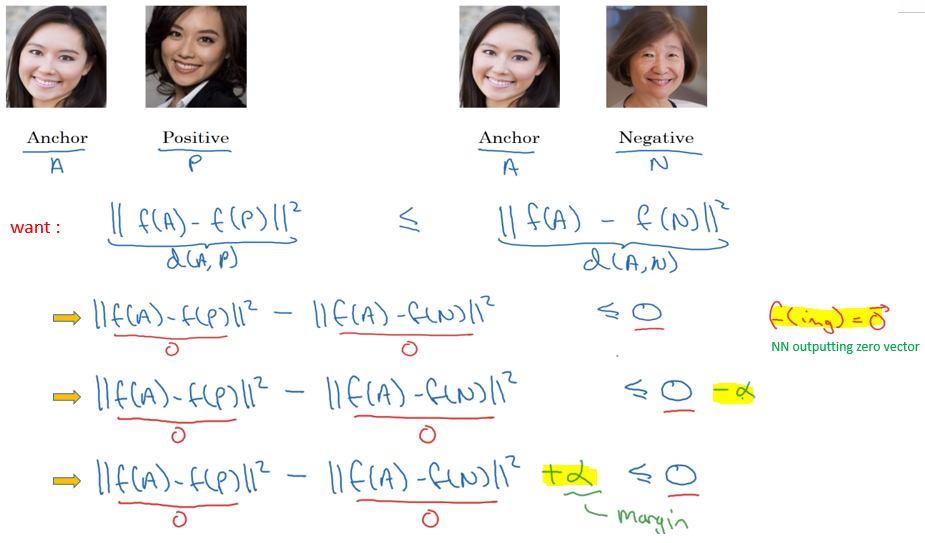 Anchor Positive Anchor Negative
A P A N
want : || f(A) - f(P) ||² ≤ || f(A) - f(N) ||²
d(A, P) d(A, N)
|| f(A) - f(P) ||² - || f(A) - f(N) ||² ≤ 0 f(img) = \vec{0}
0 0 NN outputting zero vector
|| f(A) - f(P) ||² - || f(A) - f(N) ||² ≤ 0 - α
0 0
|| f(A) - f(P) ||² - || f(A) - f(N) ||² + α ≤ 0
0 0 margin